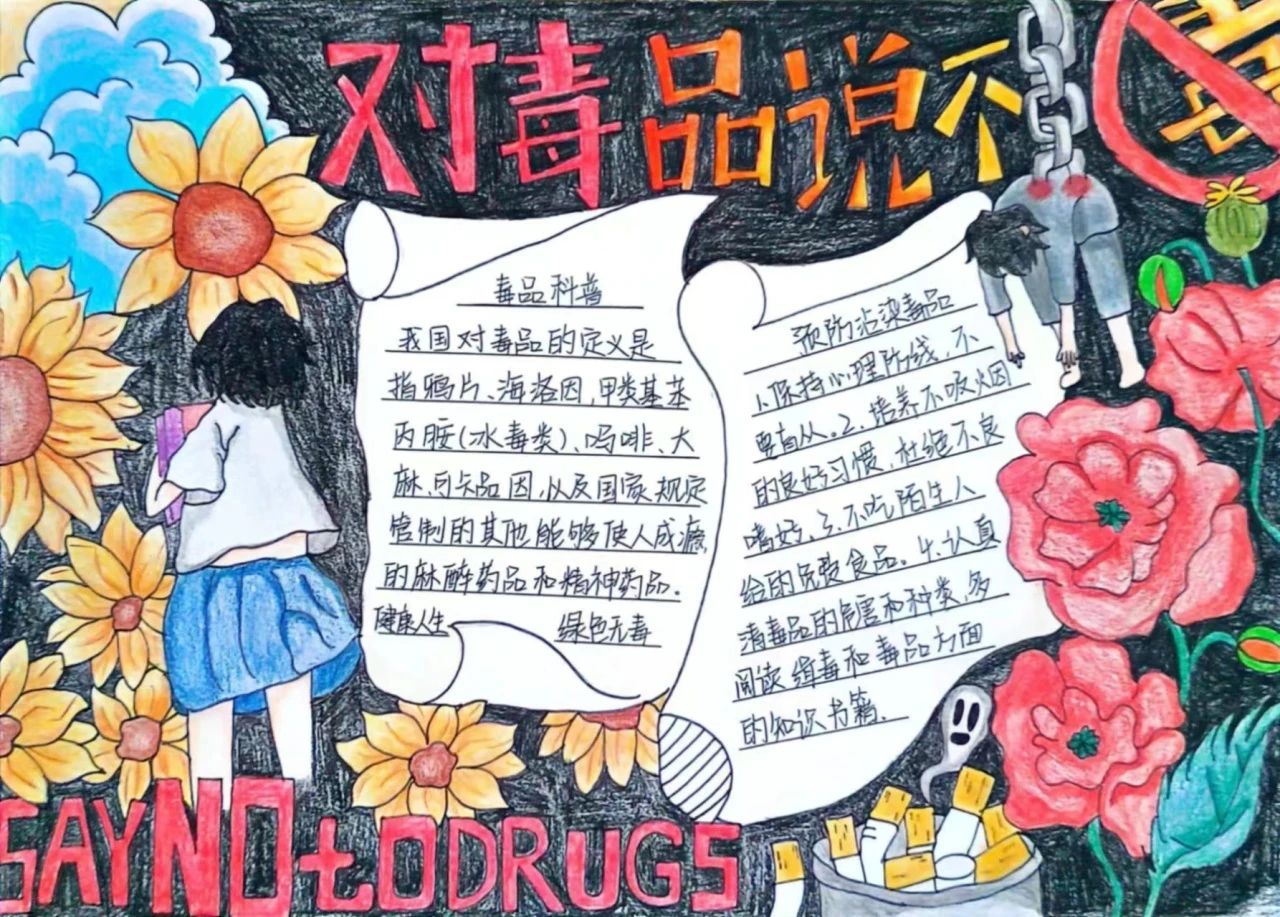 对毒品说不
毒
毒品科普
我国对毒品的定义是
指鸦片、海洛因,甲类基苯
丙胺(冰毒类)、吗啡、大
麻、可卡品因,以及国家规定
管制的其他能够使人成瘾
的麻醉药品和精神药品.
健康人生 绿色无毒
预防沾染毒品
1、保持心理防线,不
要盲从。2、培养不吸烟
的良好习惯,杜绝不良
嗜好、3、不吃陌生人
给的免费食品。4、认真
清毒品的危害和种类,多
阅读缉毒和毒品方面
的知识书籍.
SAY NO to DRUGS